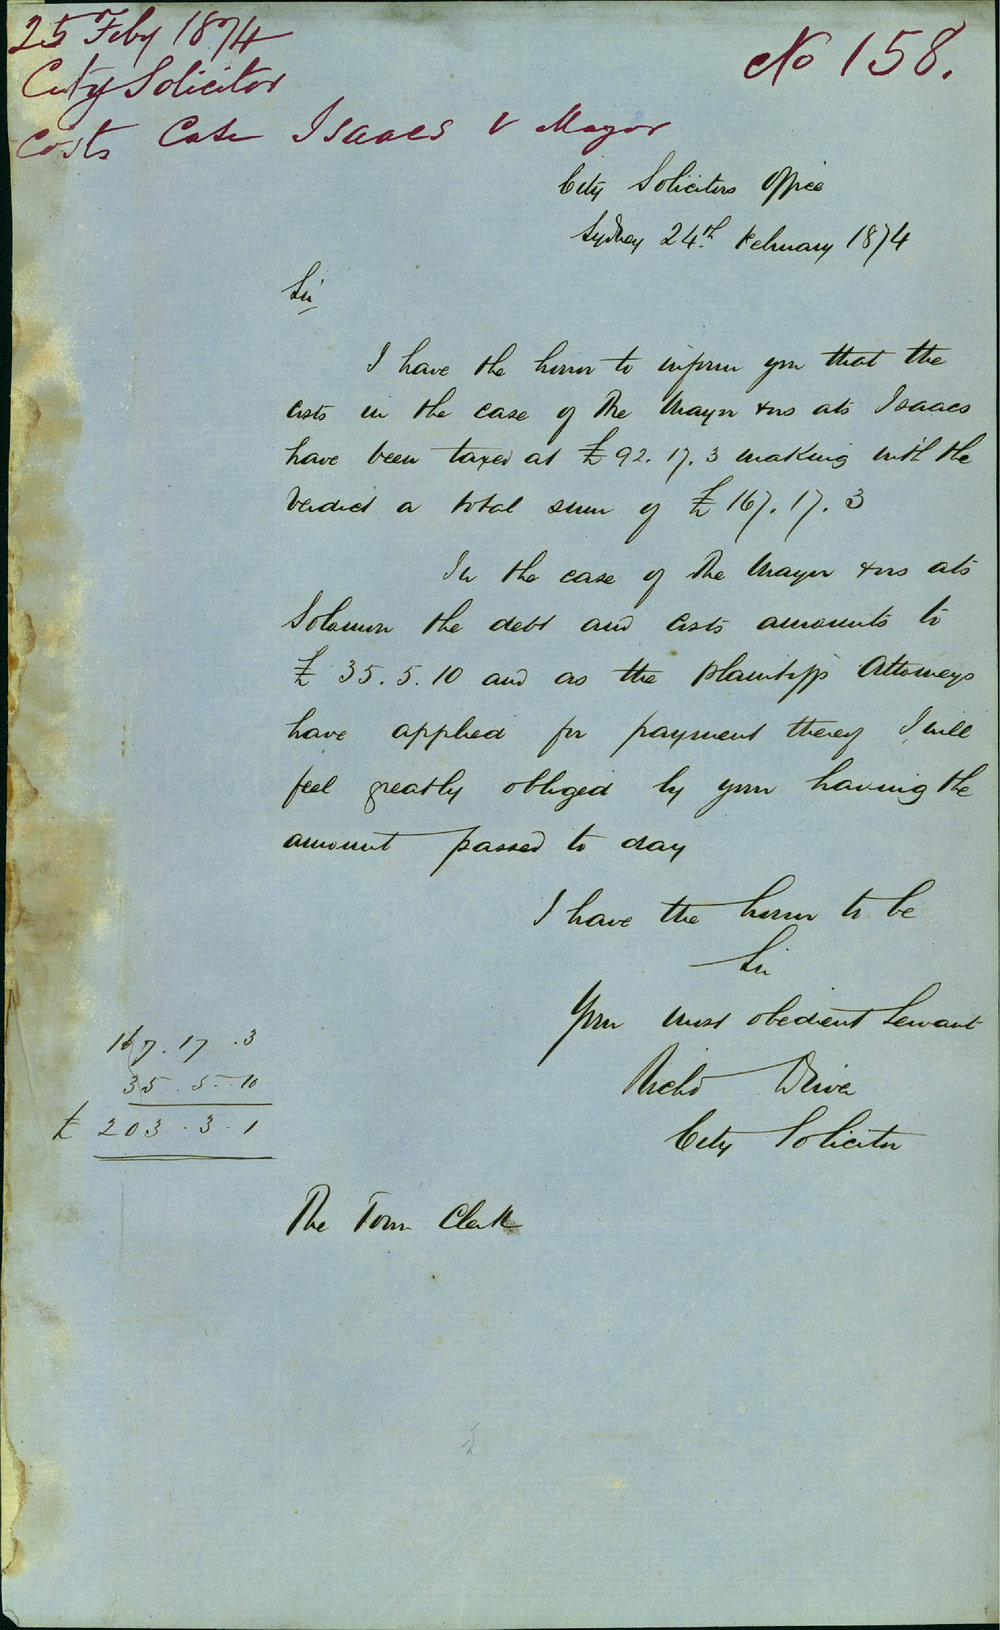 25 Feby 1874
City Solicitor
Costs Case Isaacs v Mayor
No 158.
City Solicitors Office
Sydney 24th February 1874
Sir
I have the honor to inform you that the
costs in the case of The Mayor & ors ats Isaacs
have been taxed at £92.17.3 making with the
Verdict a total sum of £167.17.3
In the case of The Mayor & ors ats
Solomon the debt and costs amounts to
£35.5.10 and as the plaintiffs Attorneys
have applied for payment thereof I will
feel greatly obliged by your having the
amount passed to day
I have the honor to be
Sir
Your most obedient Servant
Richd Driver
City Solicitor
167.17.3
35.5.10
£203.3.1
The Town Clerk